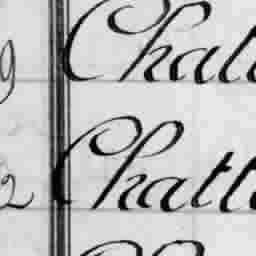 9 Chat
2 Chatt